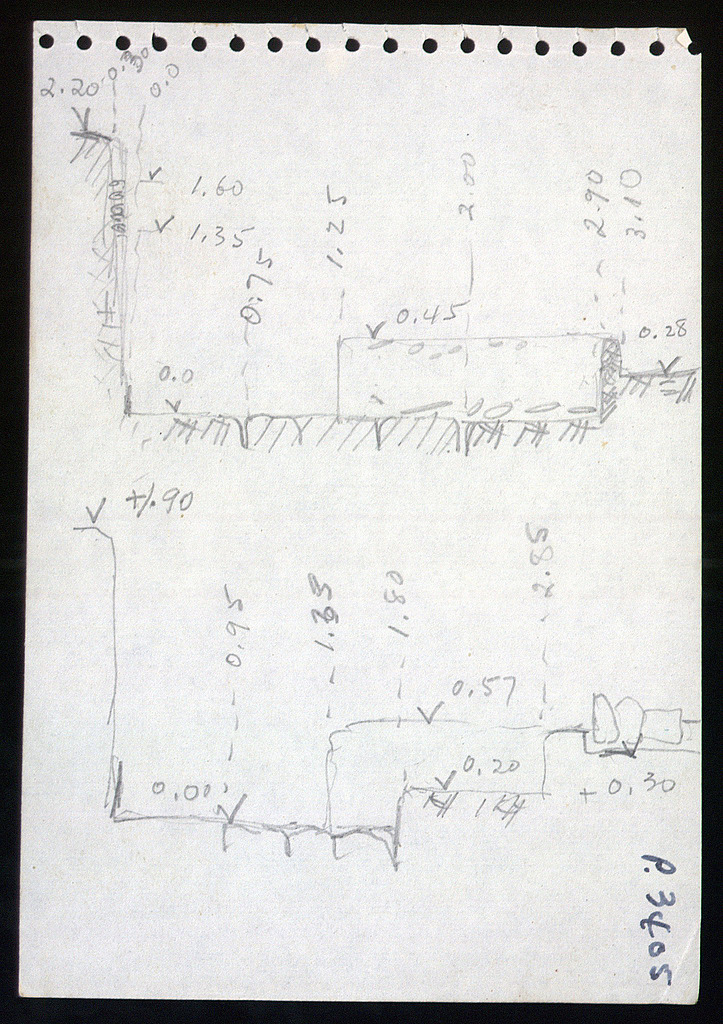 2.20
0.30
0.0
1.60
1.35
0.75
1.25
2.00
2.90
3.10
0.45
0.28
0.0
+1.90
0.95
1.80
2.85
0.57
0.00
0.20
+0.30
P. 3405